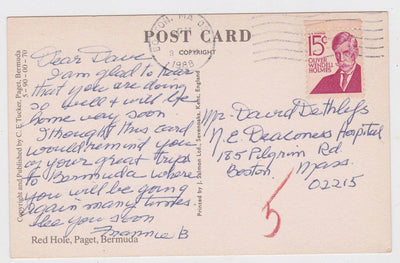 POST CARD
© COPYRIGHT
1988
15¢
OLIVER
WENDELL
HOLMES
Dear Dave
I am glad to hear
that you are doing
so well & will be
home very soon
I thought this card
would remind you
of your great trips
to Bermuda where
you will be going
again many times.
See you soon
Frannie B
Mr. David Dethlefs
N.E. Deaconess Hospital
185 Pilgrim Rd
Boston, Mass.
02215
5
Red Hole, Paget, Bermuda
Copyright and Published by C. E. Tucker, Paget, Bermuda
5-90-00-70
Printed by J. Salmon Ltd., Sevenoaks, Kent, England